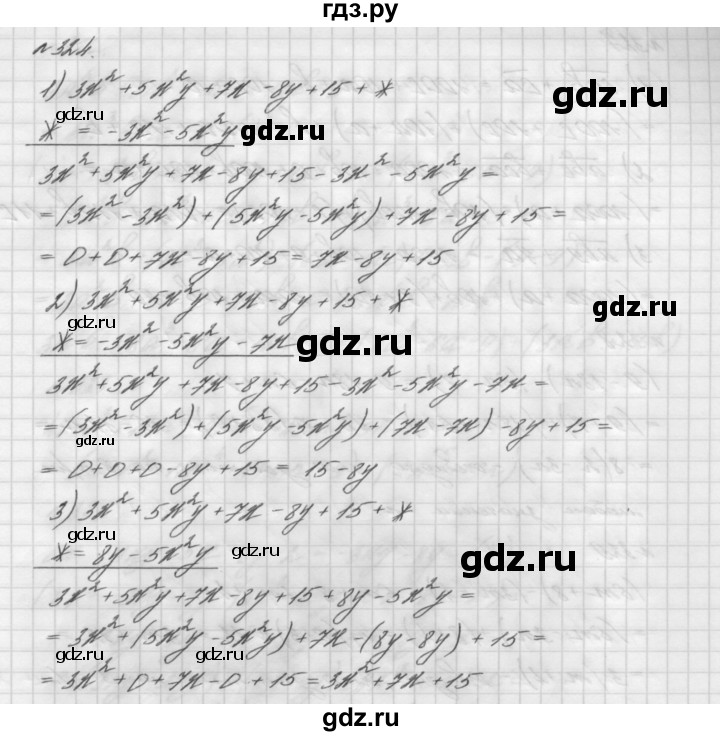 гдз.ру
№324.
1) 3x² + 5x²y + 7x - 8y + 15 + *
gdz.ru
gdz.ru
* = -3x² - 5x²y
gdz.ru
3x² + 5x²y + 7x - 8y + 15 - 3x² - 5x²y =
= (3x² - 3x²) + (5x²y - 5x²y) + 7x - 8y + 15 =
= 0 + 0 + 7x - 8y + 15 = 7x - 8y + 15
2) 3x² + 5x²y + 7x - 8y + 15 + *
gdz.ru
gdz.ru
* = -3x² - 5x²y - 7x
gdz.ru
3x² + 5x²y + 7x - 8y + 15 - 3x² - 5x²y - 7x =
= (3x² - 3x²) + (5x²y - 5x²y) + (7x - 7x) - 8y + 15 =
gdz.ru
= 0 + 0 + 0 - 8y + 15 = 15 - 8y
3) 3x² + 5x²y + 7x - 8y + 15 + *
gdz.ru
* = 8y - 5x²y
gdz.ru
gdz.ru
3x² + 5x²y + 7x - 8y + 15 + 8y - 5x²y =
= 3x² + (5x²y - 5x²y) + 7x - (8y - 8y) + 15 =
gdz.ru
gdz.ru
= 3x² + 0 + 7x - 0 + 15 = 3x² + 7x + 15
gdz.ru